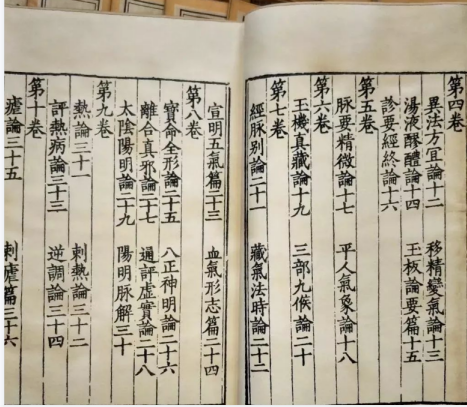 第四卷
異法方宜論十二 移精變氣論十三
湯液醪醴論十四 玉板論要篇十五
診要經終論十六
第五卷
脉要精微論十七 平人氣象論十八
第六卷
玉機真藏論十九 三部九候論二十
第七卷
經脉別論二十一 藏氣法時論二十二
宣明五氣篇二十三 血氣形志篇二十四
第八卷
寶命全形論二十五 八正神明論二十六
離合真邪論二十七 通評虛實論二十八
太陰陽明論二十九 陽明脉解三十
第九卷
熱論三十一 刺熱論三十二
評熱病論三十三 逆調論三十四
第十卷
瘧論三十五 刺瘧篇三十六